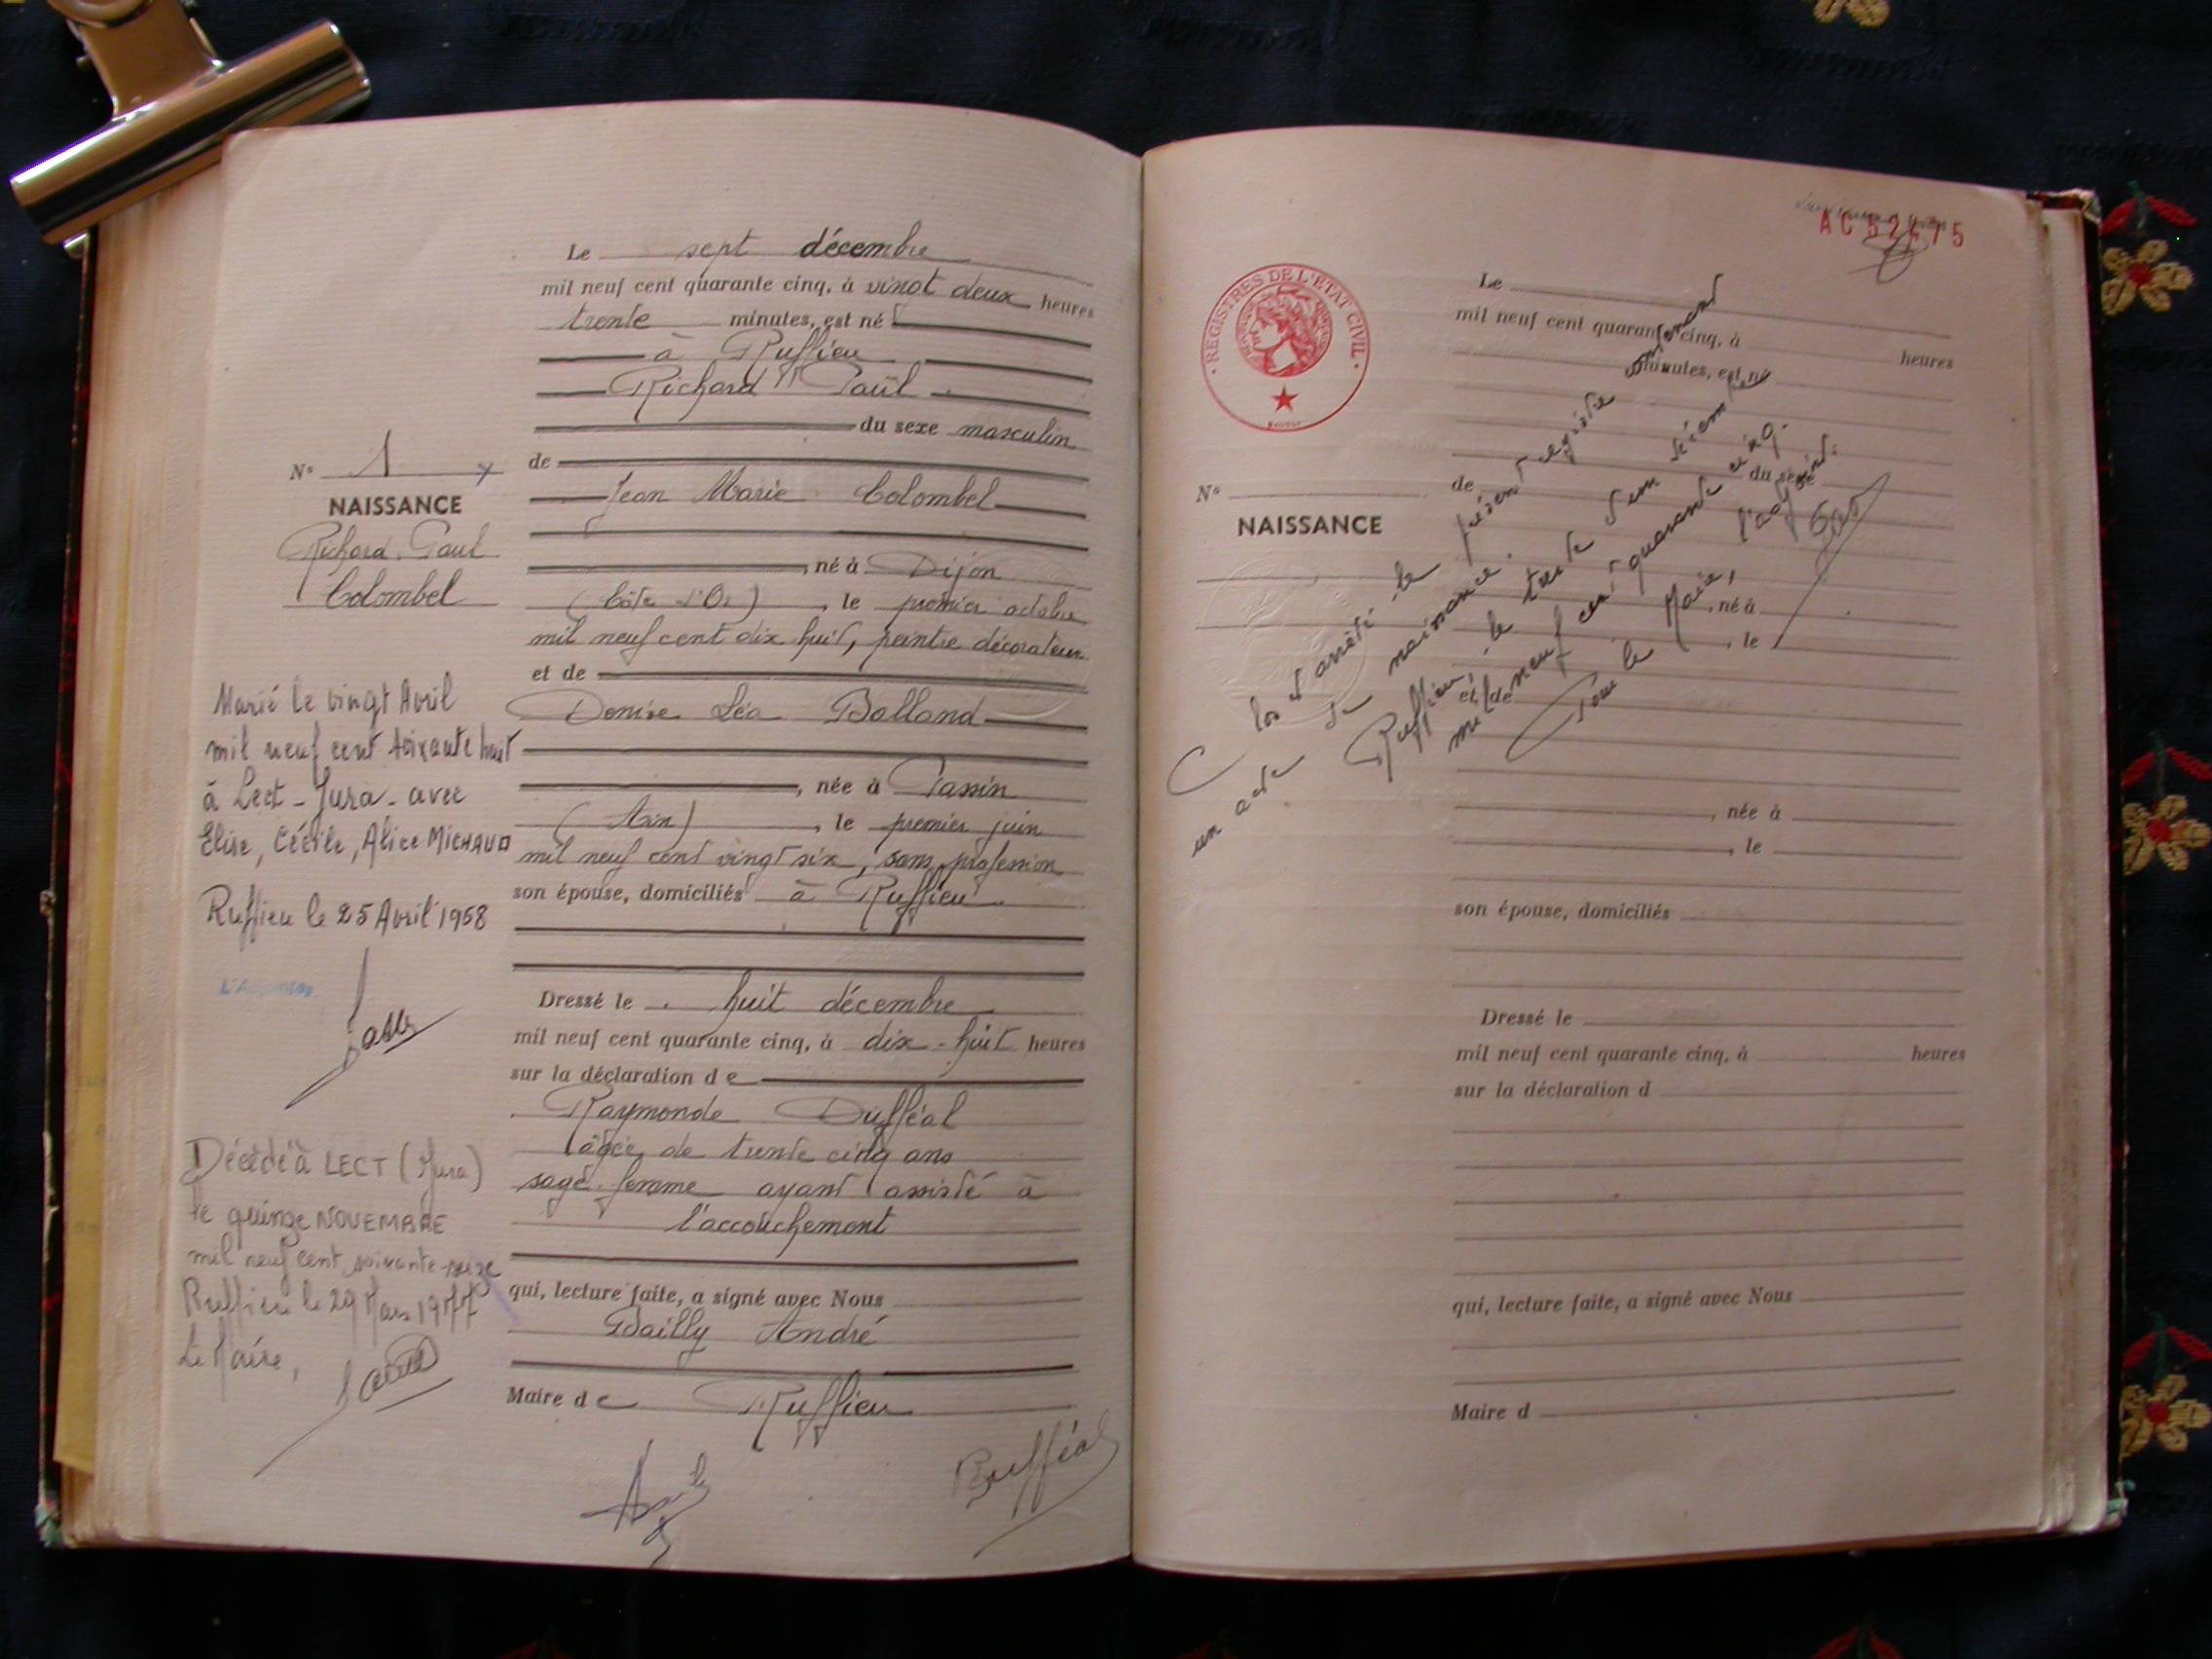 Le sept décembre
mil neuf cent quarante cinq, à vingt deux heures
trente minutes, est né
à Ruffieu
Richard Paul
du sexe masculin
de
Jean Marie Colombel
, né à Dijon
(Côte d'Or), le premier octobre
mil neuf cent dix huit, peintre décorateur
et de
Denise Léa Balland
, née à Passin
(Ain), le premier juin
mil neuf cent vingt six, sans profession
son épouse, domiciliés à Ruffieu
Dressé le huit décembre
mil neuf cent quarante cinq, à dix-huit heures
sur la déclaration de
Raymonde Dufféal
âgée de trente cinq ans
sage-femme ayant assisté à
l'accouchement
qui, lecture faite, a signé avec Nous
Bailly André
Maire de Ruffieu
N° 1
NAISSANCE
Richard Paul
Colombel
Marié le vingt Avril
mil neuf cent soixante huit
à Lect - Jura - avec
Elise, Cécile, Alice MICHAUD
Ruffieu le 25 Avril 1968
Décédé à LECT (Jura)
le quinze NOVEMBRE
mil neuf cent soixante-seize
Ruffieu le 29 Mars 1977
Le Maire,
AC 52475
REGISTRES DE L'ETAT CIVIL
Le
mil neuf cent quarante cinq, à heures
minutes, est né
du sexe
de
N°
NAISSANCE
, né à
, le
et de
, née à
, le
son épouse, domiciliés
Dressé le
mil neuf cent quarante cinq, à heures
sur la déclaration d
qui, lecture faite, a signé avec Nous
Maire d
Clos et arrêté le présent registre contenant
un acte de naissance.
Ruffieu, le trente et un décembre
mil neuf cent quarante cinq.
Pour le Maire, l'adjoint: